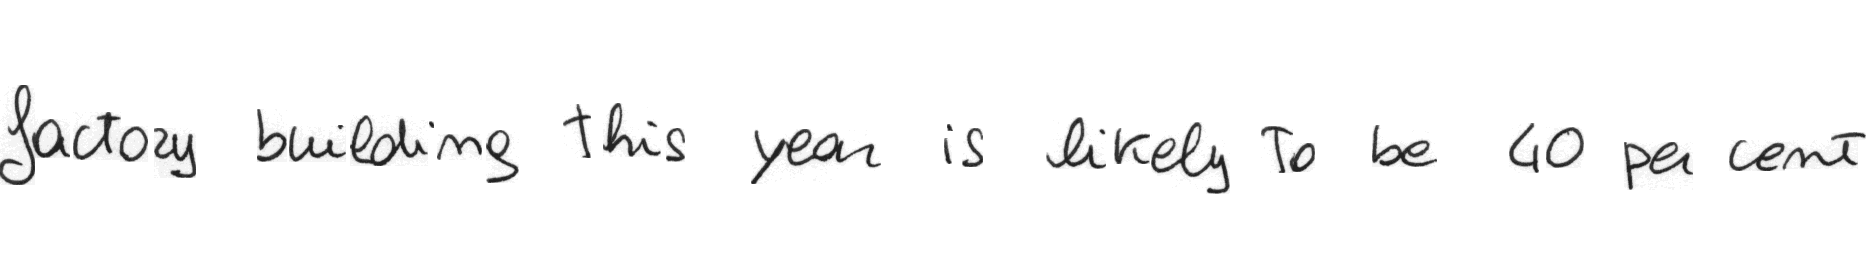 factory building this year is likely to be 40 per cent